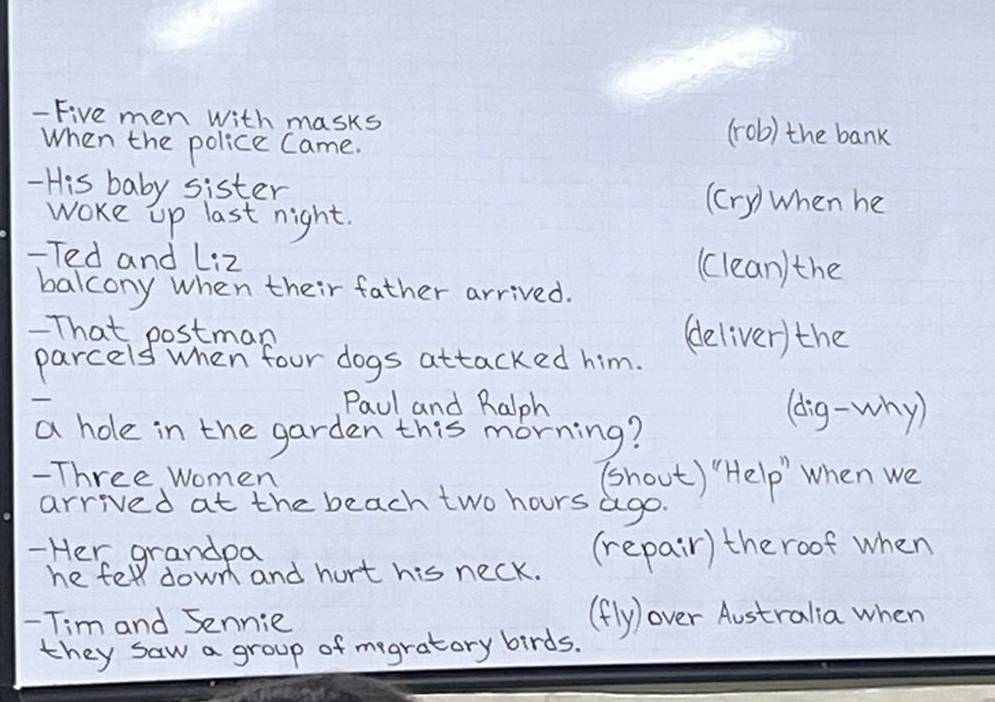 -Five men with masks (rob) the bank
when the police came.
-His baby sister (Cry) when he
woke up last night.
-Ted and Liz (Clean) the
balcony when their father arrived.
-That postman (deliver) the
parcels when four dogs attacked him.
- Paul and Ralph (dig-why)
a hole in the garden this morning?
-Three women (shout) "Help" when we
arrived at the beach two hours ago.
-Her grandpa (repair) the roof when
he fell down and hurt his neck.
-Tim and Jennie (fly) over Australia when
they saw a group of migratory birds.